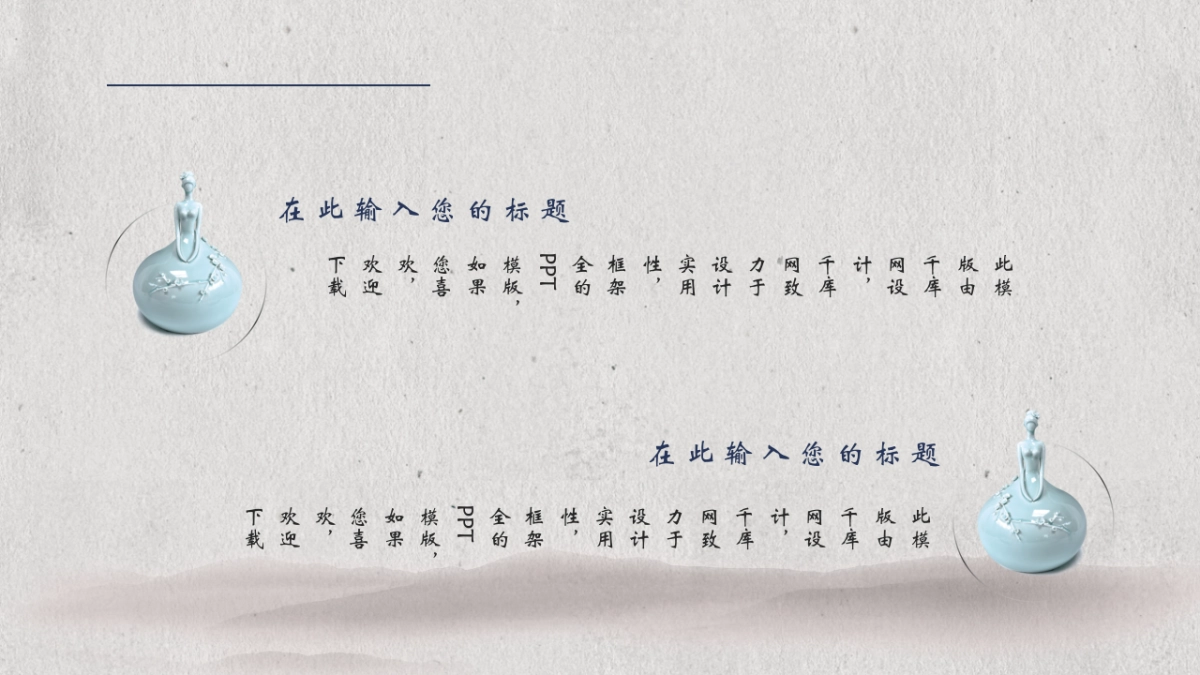 在此输入您的标题
此模
版由
千库
网设
计，
千库
网致
力于
设计
实用
性，
框架
全的
PPT
模版，
如果
您喜
欢，
欢迎
下载
在此输入您的标题
此模
版由
千库
网设
计，
千库
网致
力于
设计
实用
性，
框架
全的
PPT
模版，
如果
您喜
欢，
欢迎
下载